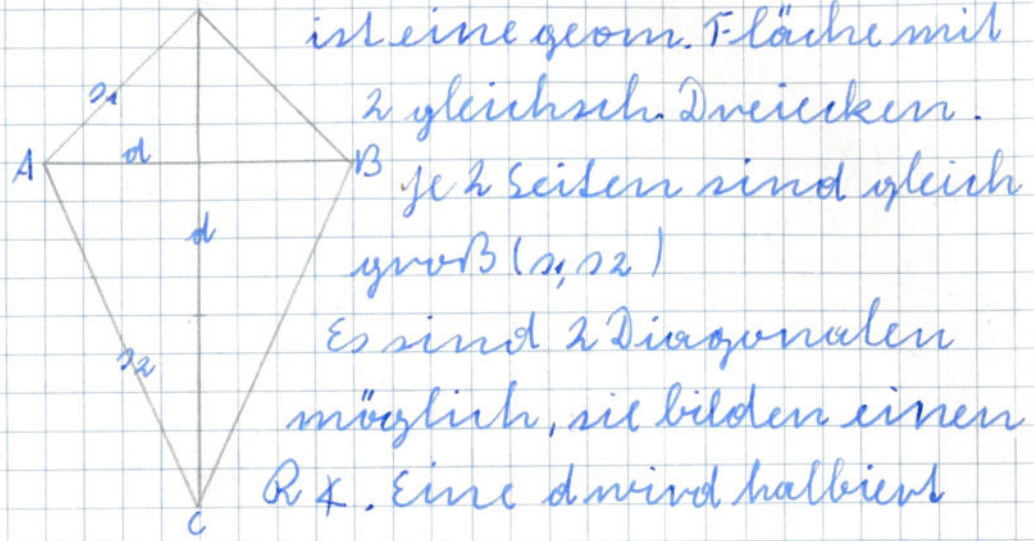 ist eine geom. Fläche mit
2 gleichsch. Dreiecken.
s1
A
d
B
je 2 Seiten sind gleich
d
groß (s1, s2)
Es sind 2 Diagonalen
s2
möglich, sie bilden einen
R ∢. Eine d wird halbiert
C